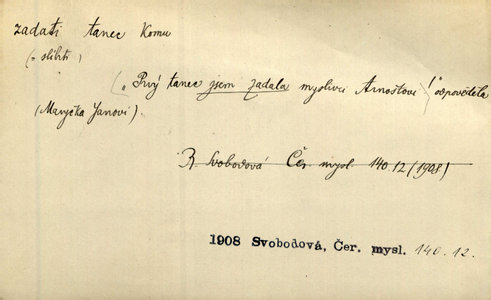 zadati tanec komu
(= slíbiti)
(„Prvý tanec jsem zadala myslivci Arnoštovi!" odpověděla
(Maryčka Janovi).
R. Svobodová Čer. mysl. 140.12 (1908)
1908 Svobodová, Čer. mysl. 140.12.